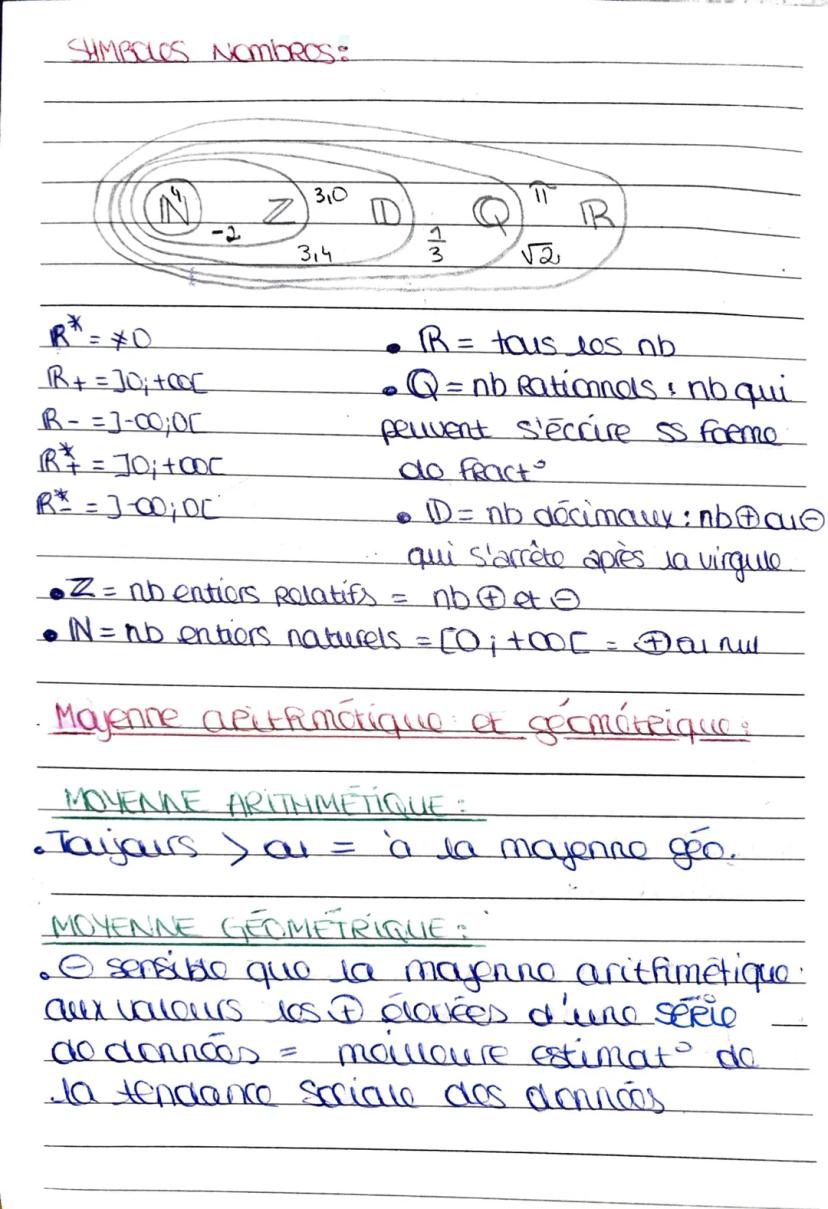 SYMBOLES NOMBRES:
4
ℕ ℤ 3,0 𝔻 ℚ π ℝ
-2 3,4 1/3 √2
R* = ≠0
R+ = ]0;+∞[
R- = ]-∞;0[
R*+ = ]0;+∞[
R*- = ]-∞;0[
• ℝ = tous les nb
• ℚ = nb Rationnels : nb qui
peuvent s'éccire ss forme
de fract°
• 𝔻 = nb décimaux : nb ⊕ ou ⊖
qui s'arrête après la virgule
• ℤ = nb entiers Relatifs = nb ⊕ et ⊖
• ℕ = nb entiers naturels = [0;+∞[ = ⊕ ou nul
Moyenne arithmétique et géométrique:
MOYENNE ARITHMÉTIQUE:
• Toujours > ou = à la moyenne géo.
MOYENNE GÉOMÉTRIQUE:
• ⊖ sensible que la moyenne arithmétique
aux valeurs les ⊕ élevées d'une série
de données = meilleure estimat° de
la tendance sociale des données